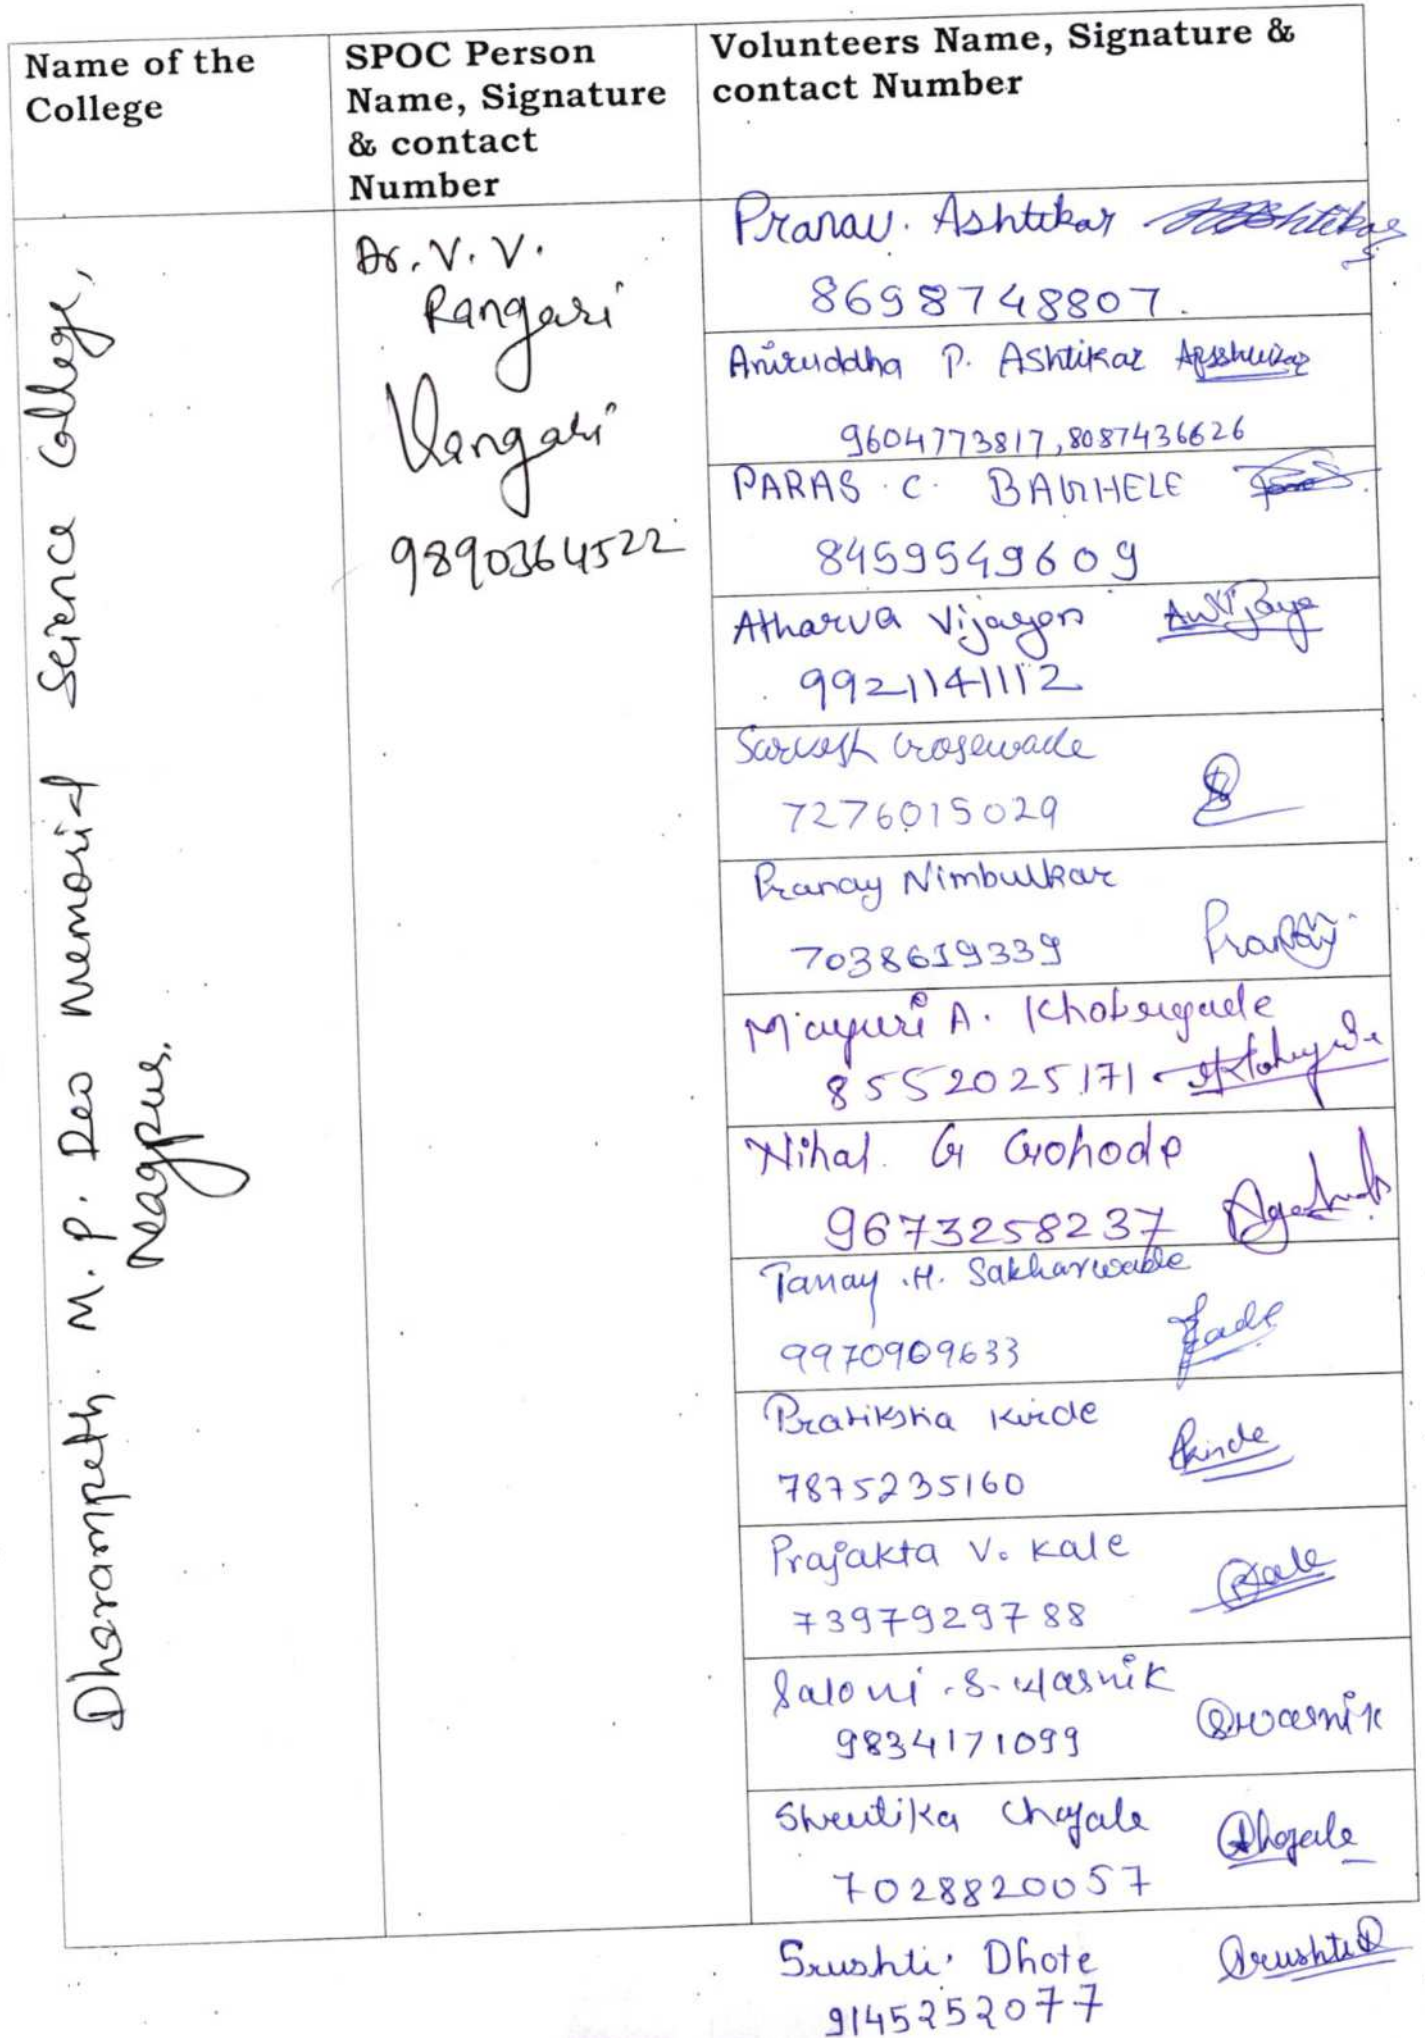 Name of the
College
SPOC Person
Name, Signature
& contact
Number
Volunteers Name, Signature &
contact Number
Dharampeth M. P. Deo Memorial Science College,
Nagpur.
Dr. V. V.
Rangari
Rangari
9890364522
Pranav. Ashtikar
8698748807.
Aniruddha P. Ashtikar
9604773817, 8087436626
PARAS C. BAGHELE
8459549609
Atharva Vijayan
9921141112
Sarvesh Gosewade
7276015029
Pranay Nimbulkar
7038619339 Pranay
Mayuri A. Khobragade
8552025171
Nihal G Gohode
9673258237
Tanay .H. Sakharwade
9970909633
Pratiksha Kirde
7875235160 PKirde
Prajakta V. Kale
7397929788 PKale
Saloni .S. Wasnik
9834171099 SWasnik
Shrutika Chafale
7028820057
Srushti Dhote SrushtiD
9145252077